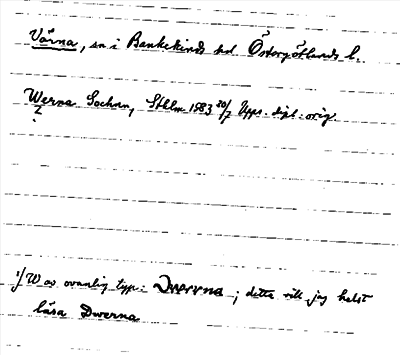 Värna, sn i Bankekinds hd Östergötlands l.
Werna Sochnn, Sthlm 1583 20/7 Upps. dipl. orig.
1/ W av ovanlig typ: Dwerna ; detta vill jag helst
läsa Dwerna